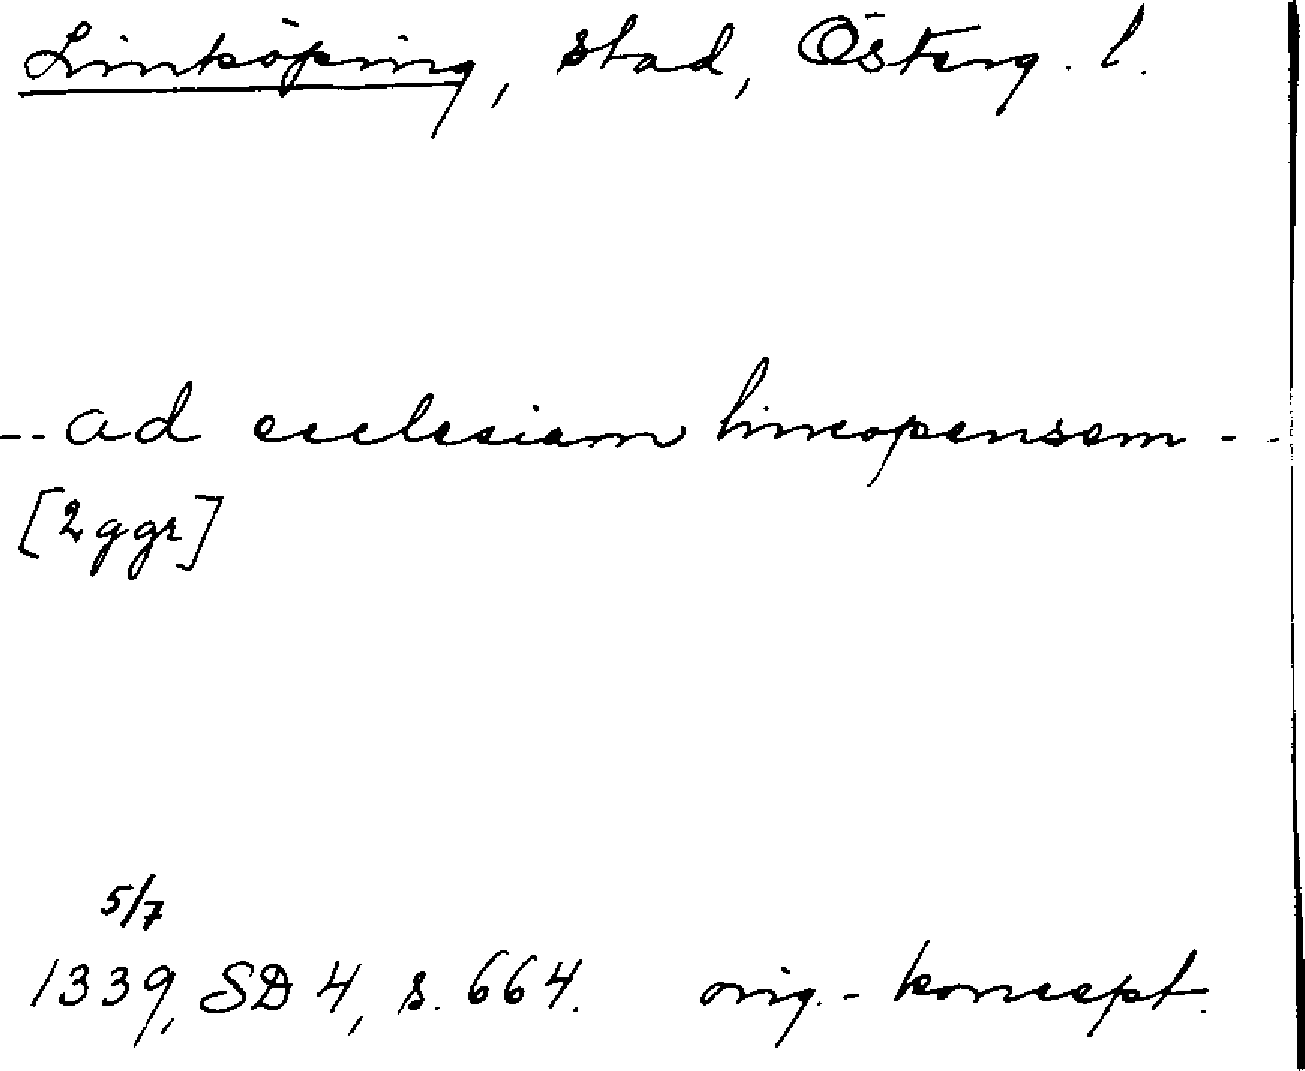 Linköping, stad, Österg. l.
-- ad ecclesiam lincopensem --
[2 ggr]
5/7
1339, SD 4, s. 664. orig.-koncept.